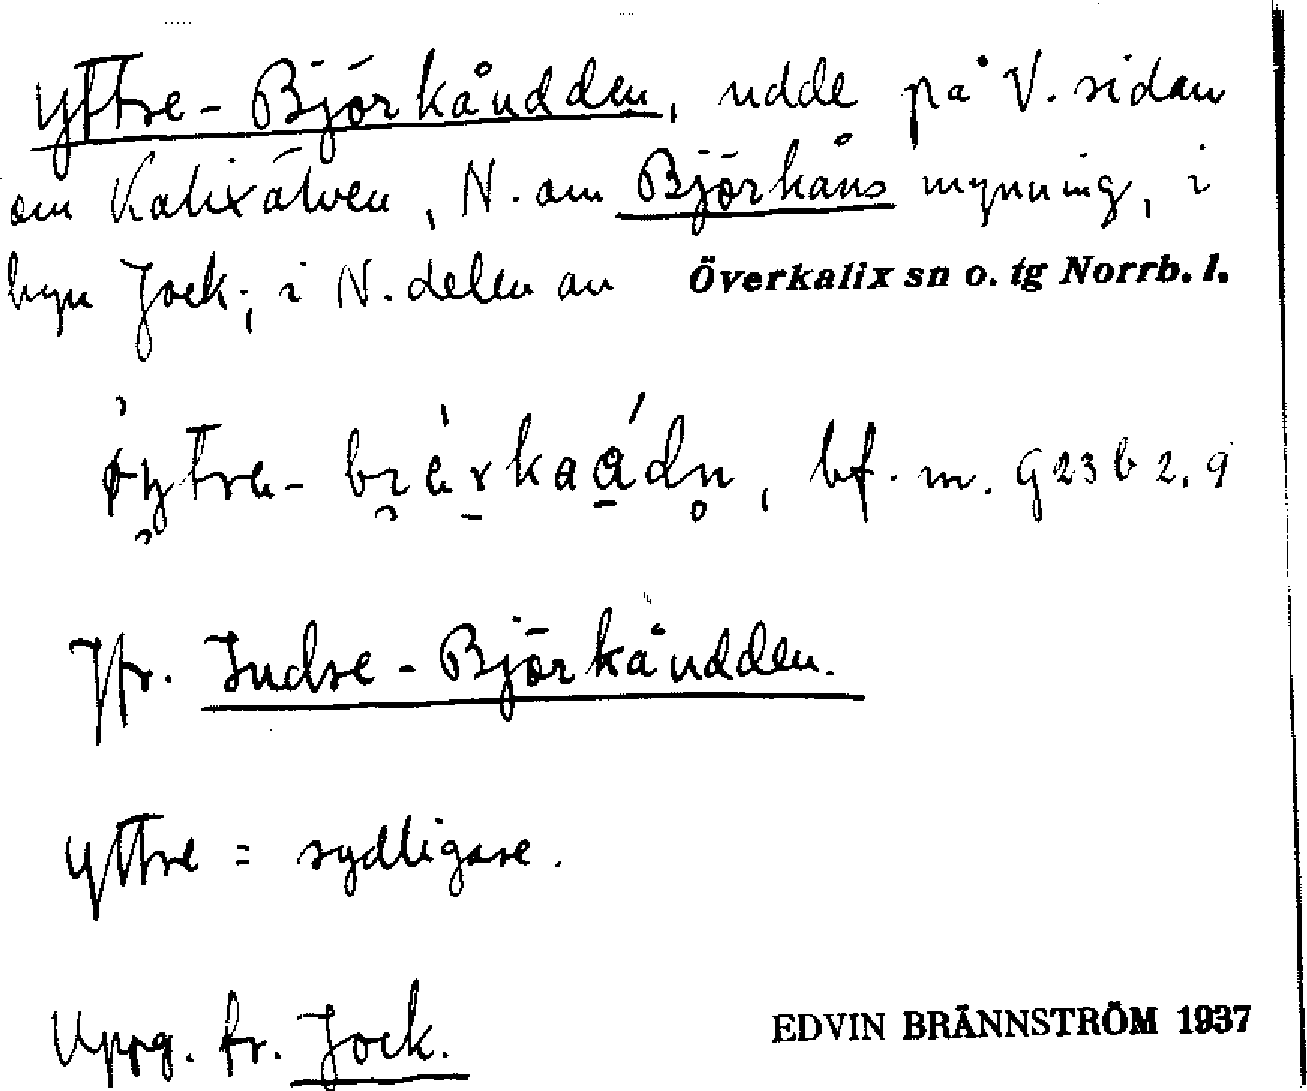 Yttre-Björkåudden, udde på V. sidan
om Kalixälven, N. om Björkåns mynning, i
byn Jock; i N. delen av Överkalix sn o. tg Norrb. l.
bf. m. G23 b 2, 9
Jfr. Indre-Björkåudden.
Yttre = sydligare.
Uppg. fr. Jock.
EDVIN BRÄNNSTRÖM 1937